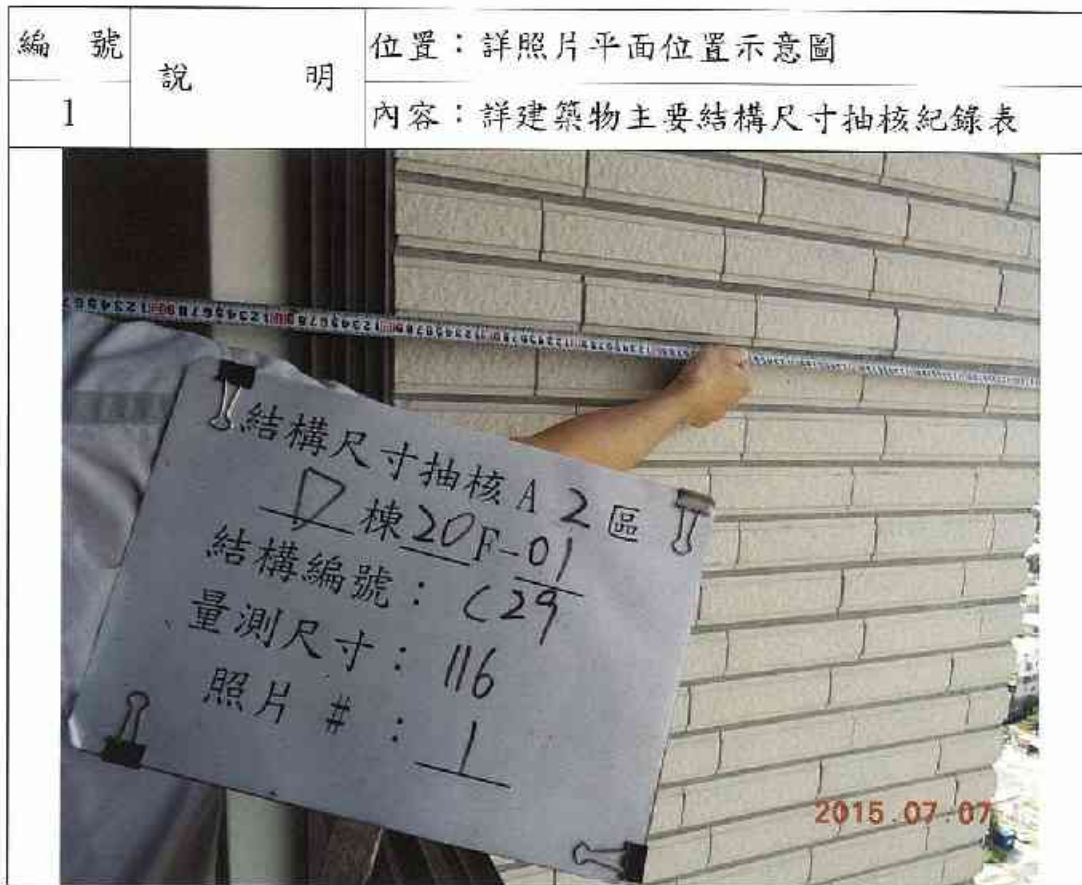 編 號
1
說 明
位置：詳照片平面位置示意圖
內容：詳建築物主要結構尺寸抽核紀錄表
結構尺寸抽核A 2 區
D 棟 20 F-01
結構編號：C29
量測尺寸：116
照片 #：1
2015.07.07